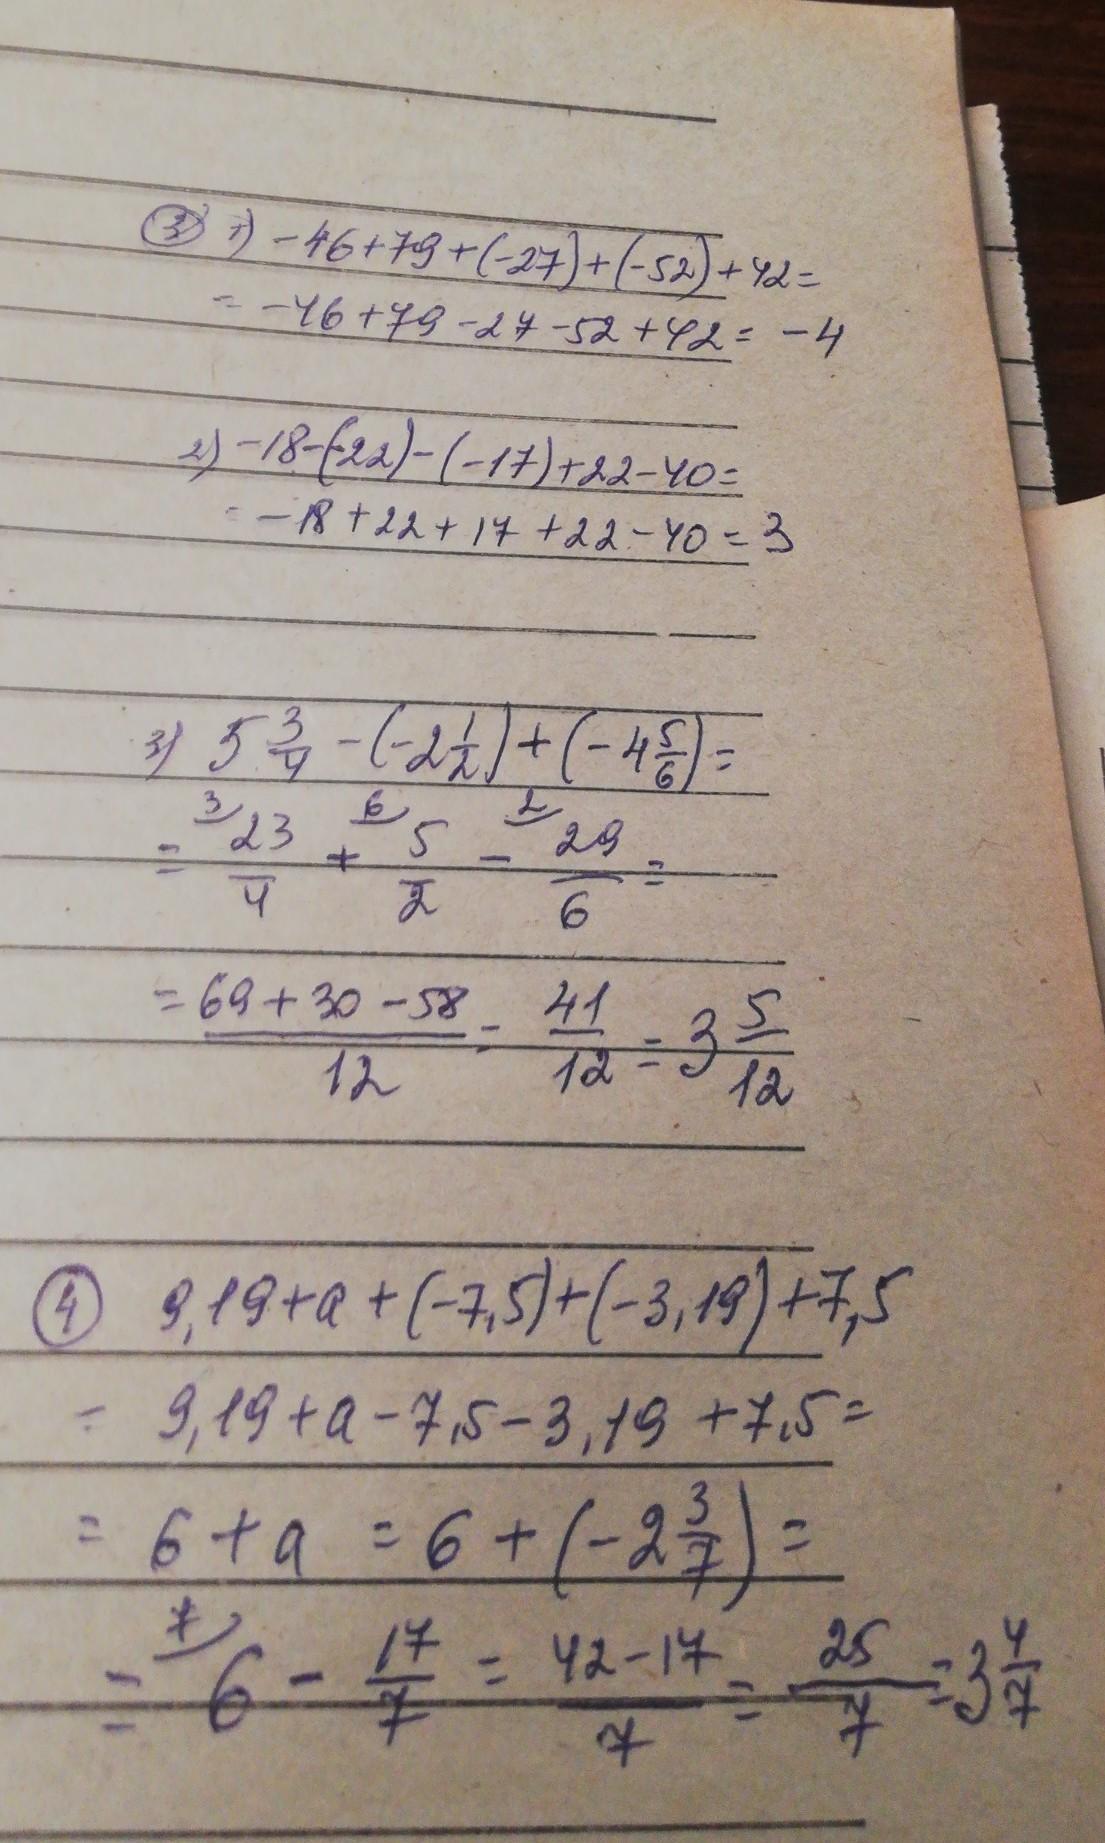 ③ 1) -46+79+(-27)+(-52)+42=
= -46+79-27-52+42= -4
2) -18-(-22)-(-17)+22-40=
= -18+22+17+22-40=3
3) 5 3/4 -(-2 1/2)+(-4 5/6)=
= 3 23/4 + 6 5/2 - 2 29/6 =
= 69+30-58/12 = 41/12 = 3 5/12
④ 9,19+a+(-7,5)+(-3,19)+7,5
= 9,19+a-7,5-3,19+7,5=
= 6+a = 6+(-2 3/7)=
= 7 6 - 17/7 = 42-17/7 = 25/7 = 3 4/7